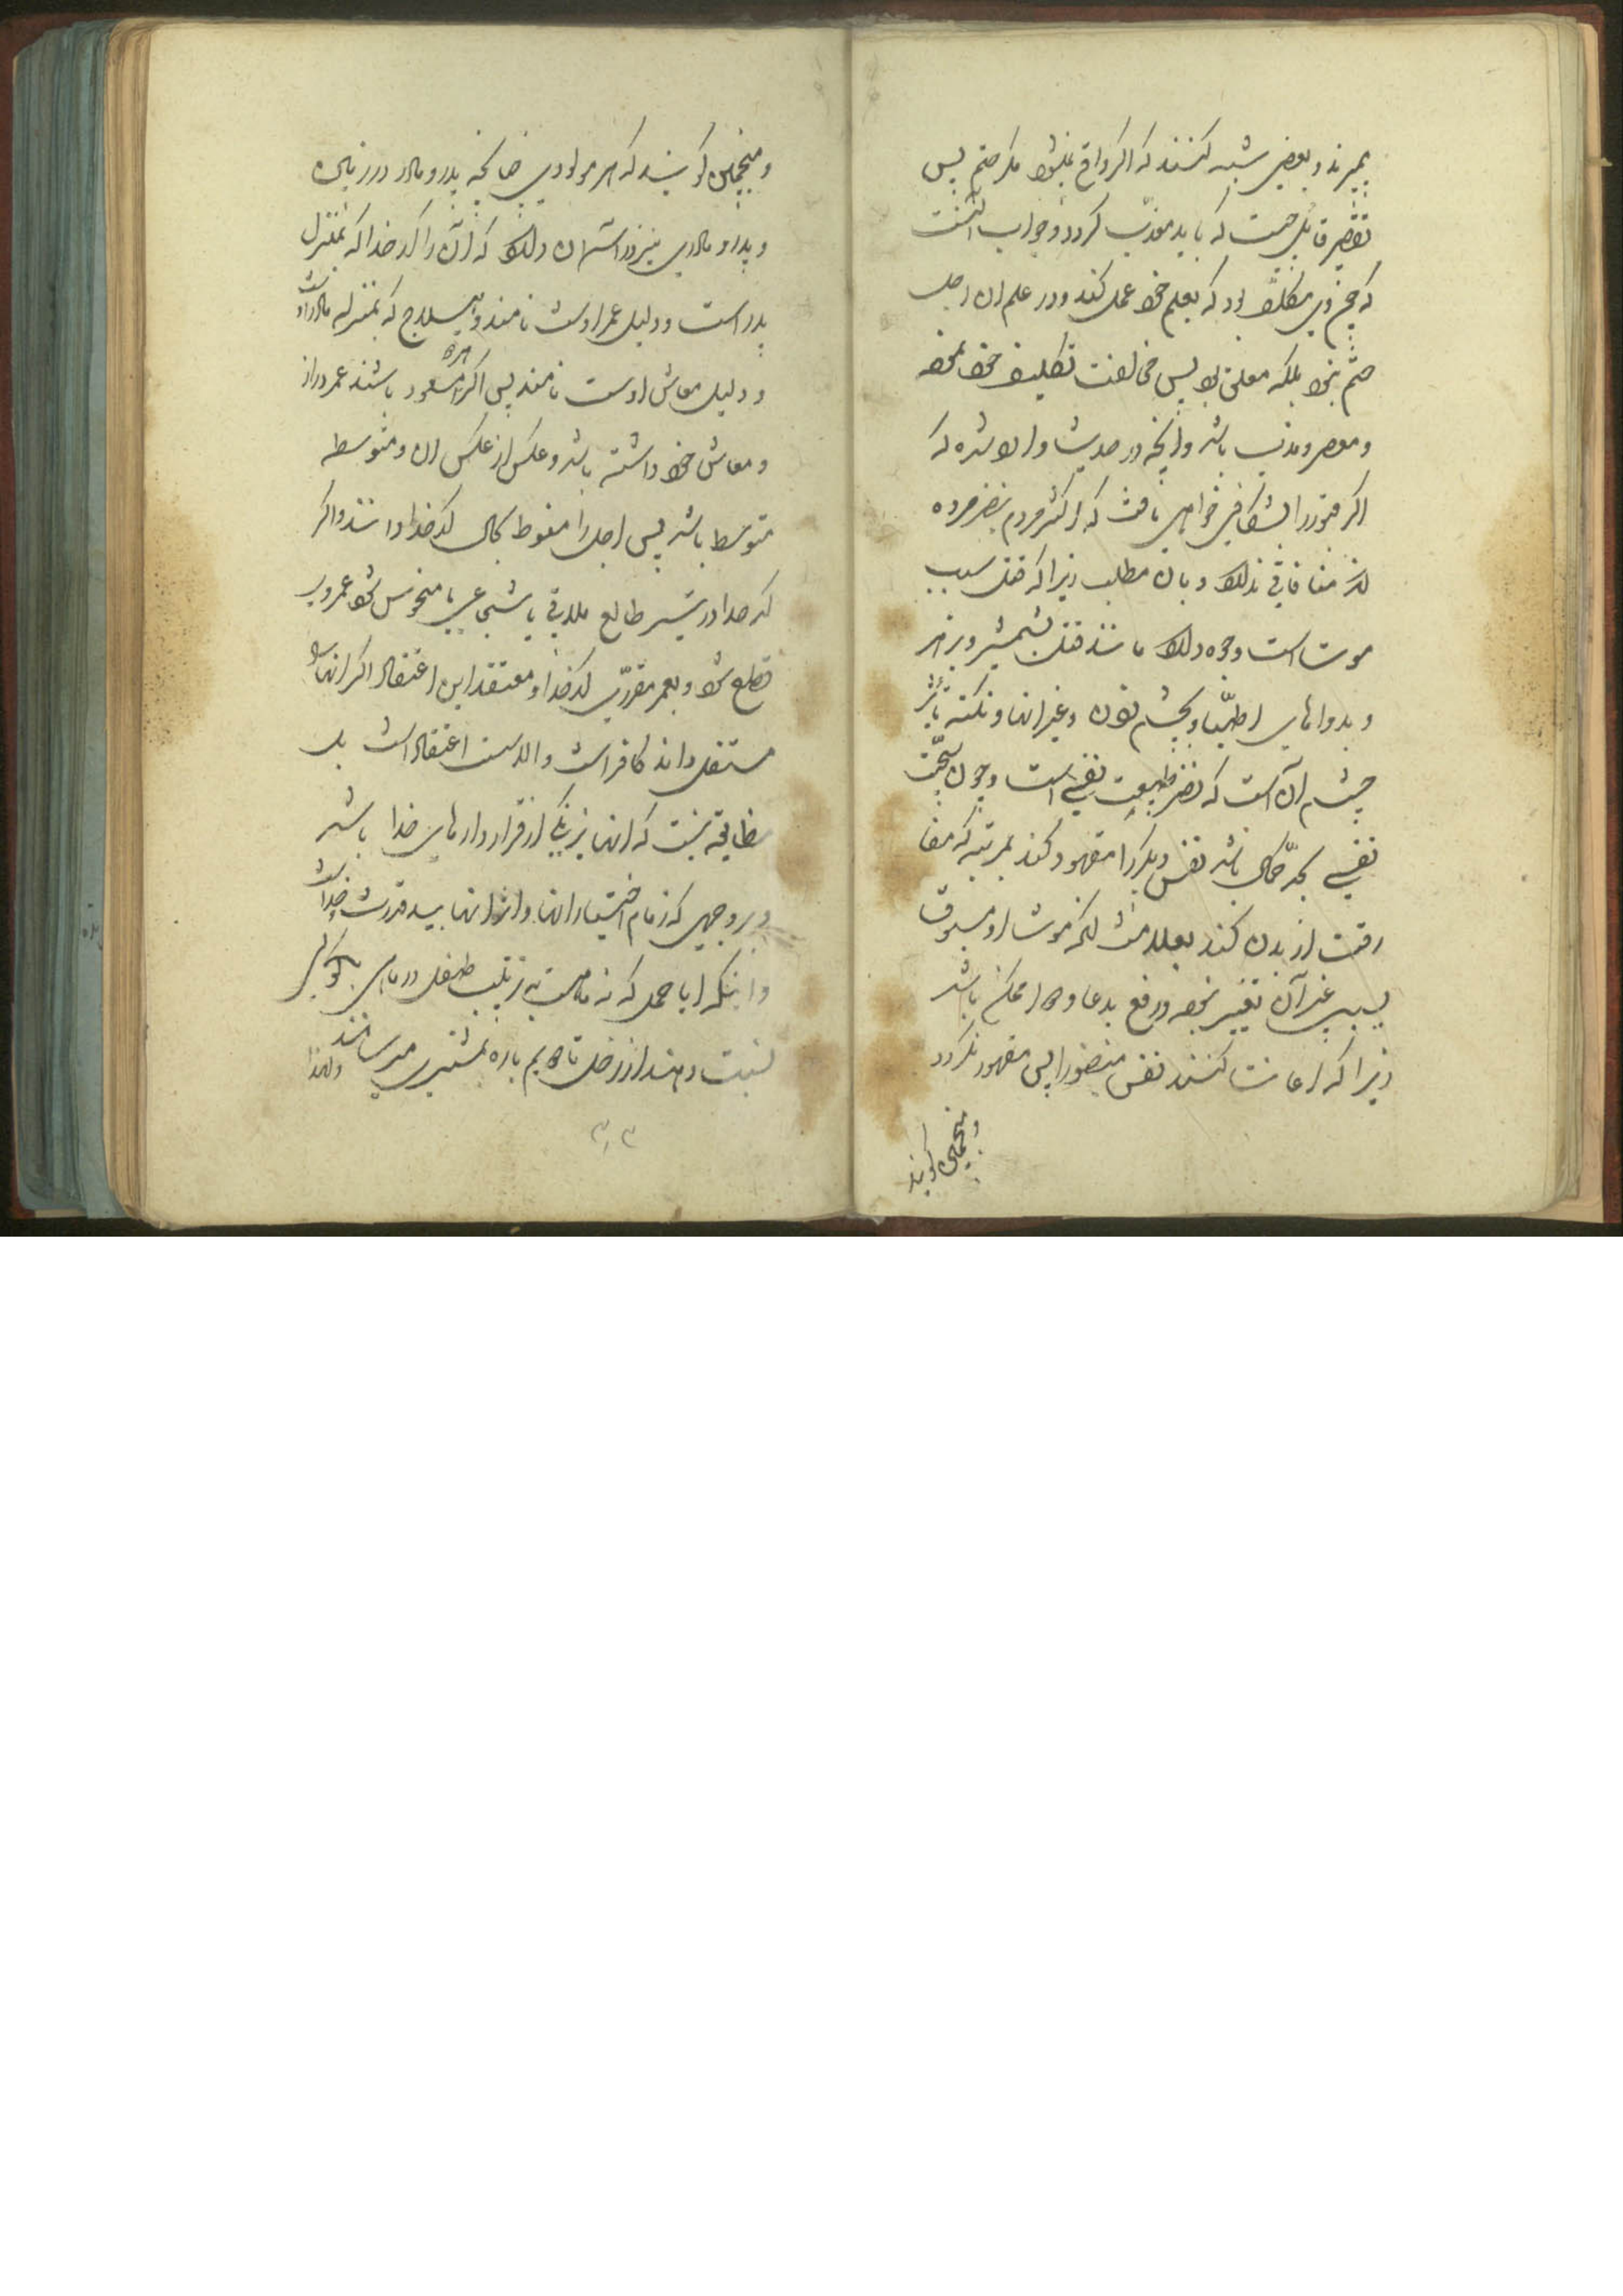 بمیرند و بعضی شبهه کنند که اگر واقع نمیشود مگر حتم پس
تقصیر قاتل چیست که باید معذب گردد و جواب آنست
که هیچ ذی مکلف بود که بعلم خود عمل کند و در علم ان اجل
حتم نبود بلکه معلق بود پس مخالفت تکلیف خود نموده
و مقصر و مذنب باشد و آنچه در حدیث وارد شده که
اگر قبور را بشکافی خواهی یافت که اکثر مردم بنظر مرده
اند منافاتی ندارد و بان مطلب زیرا که قتل سبب
موت است وجوه دارد مانند قتل بشمشیر و بزهر
و بدواهای اطبا و بچشم زدن و غیر انها و نکته تاثیر
چشم آن است که نظر طبیعت نفس است و چون سمیت
نفسی بحد کمال باشد نفس دیگر را مقهود کند بمرتبه که مفا
رقت از بدن کند بعلامت لکن موت او مسبوق
بسبب غیر آن تغییر نموده و رفع بدعا و دوا ممکن باشد
زیرا که اعانت کنند نفس منظور را پس مقهور نگردد
و منجمین گویند
و منجمین گویند که هر مولودی چنانچه پدر و مادر در زمین
و پدر و مادری نیز در آسمان دارد که آن را کدخدا که بمنزله
پدر است و دلیل عمر اوست نامند و هیلاج که بمنزله مادر اوست
و دلیل معاش اوست نامند پس اگر هر دو مسعود باشند عمر دراز
و معاش خود داشته باشد و عکس از عکس ان و متوسط
متوسط باشد پس اجل را مضبوط بکمال کدخدا دانند و اگر
کدخدا در تسییر طالع ملاقی با شیء غریب یا منحوس شود عمر وی
قطع شود و بعمر مقرری کدخدا و معتقد این اعتقاد اگر انها را
مستقل داند کافر است و الا سست اعتقاد است بل
مضایقه نیست که انها نیز یکی از قراردادهای خدا باشد
و بر وجهی که زمام اختیار انها و اثر انها بید قدرت خداست
و اینکه ایام حمل که نه ماه است به ترتیب طفل در ماهی بکوکبی
نسبت دهند از زحل تا ماه بهم باره بمشتری میرسانند و لهذا